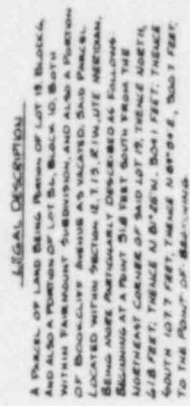 LEGAL DESCRIPTION
A PARCEL OF LAND BEING PORTION OF LOT 19, BLOCK 6,
AND ALSO A PORTION OF LOT 36, BLOCK 10, BOTH
WITHIN FAIRMOUNT SUBDIVISION, AND ALSO A PORTION
OF BOOKCLIFF AVENUE AS VACATED. SAID PARCEL
LOCATED WITHIN SECTION 12, T1S, R1W, UTE MERIDIAN.
BEING MORE PARTICULARLY DESCRIBED AS FOLLOWS
BEGINNING AT A POINT 31.8 FEET SOUTH FROM THE
NORTHEAST CORNER OF SAID LOT 19, THENCE NORTH,
61.8 FEET; THENCE N FEET; THENCE
SOUTH 107.7 FEET, THENCE N FEET,
TO THE POINT OF BEGINNING